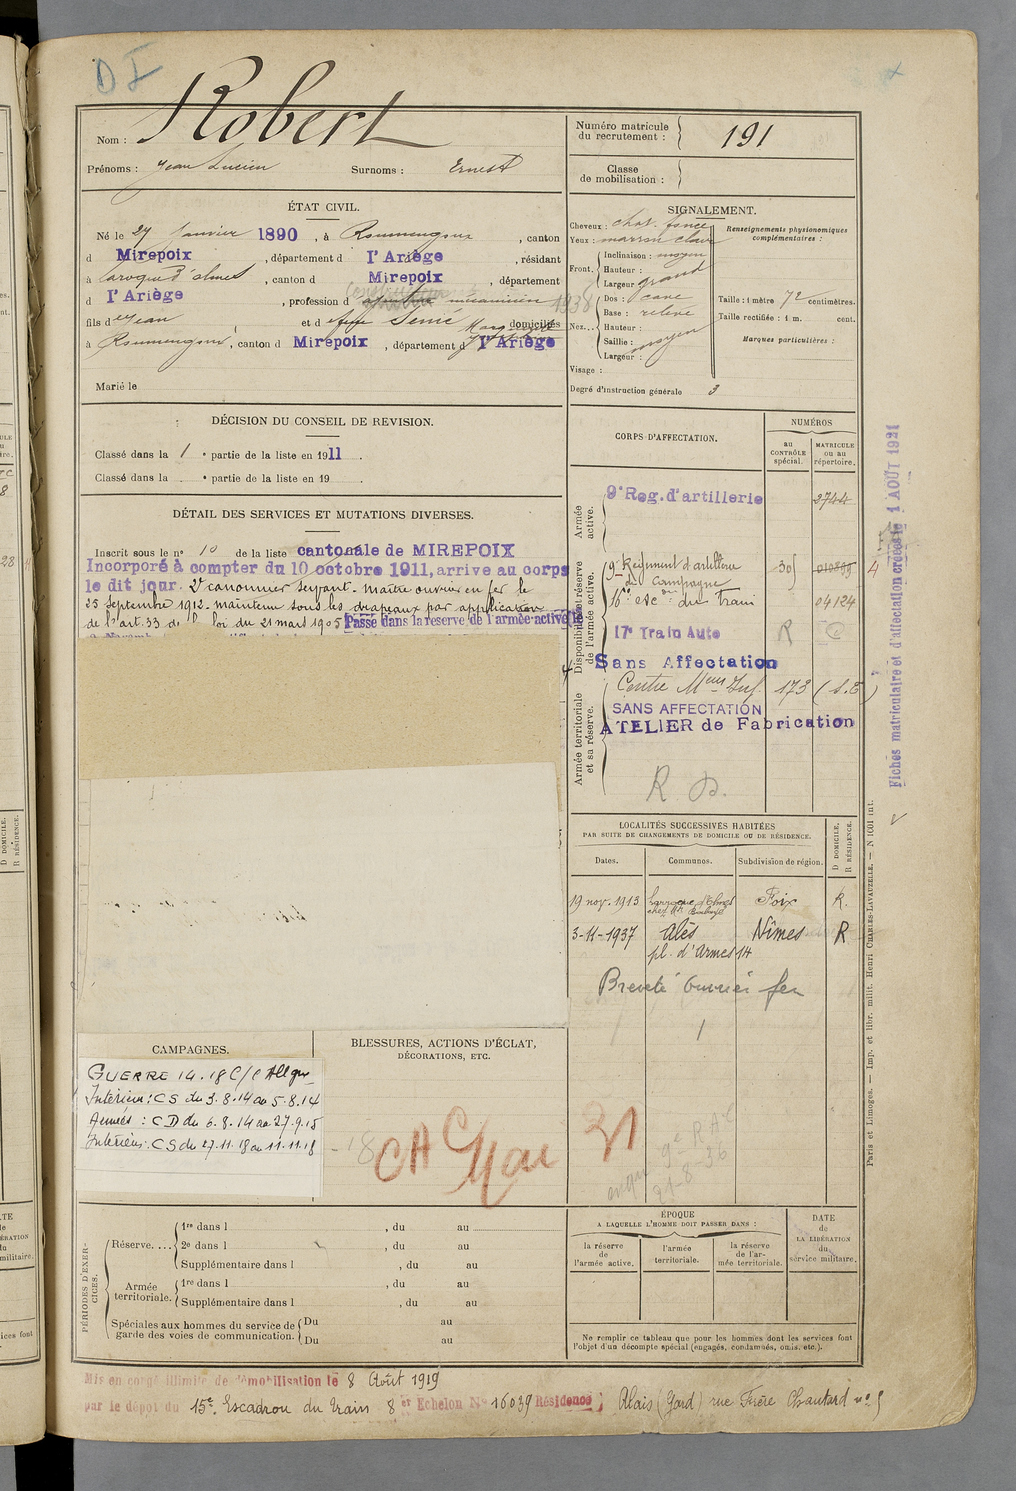 D I
Nom : Robert
Prénoms : Jean Lucien Surnoms : Ernest
Numéro matricule du recrutement : 191
Classe de mobilisation :
ÉTAT CIVIL.
Né le 27 Janvier 1890, à Roumengoux, canton
d Mirepoix, département d l'Ariège, résidant
à Laroque d'olmes, canton d Mirepoix, département
d l'Ariège, profession d mécanicien 1938
fils de Jean et d Senié domiciliés
à Roumengoux, canton d Mirepoix, département d l'Ariège
Marié le
SIGNALEMENT.
Cheveux : chat. foncé
Yeux : marron clair
Front. Inclinaison : moyen
Hauteur :
Largeur grand
Nez. Dos : cave
Base : relevé
Hauteur :
Saillie : moyen
Largeur :
Visage :
Degré d'instruction générale 3
Renseignements physionomiques complémentaires :
Taille : 1 mètre 72 centimètres.
Taille rectifiée : 1 m. cent.
Marques particulières :
DÉCISION DU CONSEIL DE REVISION.
Classé dans la 1e partie de la liste en 1911.
Classé dans la e partie de la liste en 19 .
DÉTAIL DES SERVICES ET MUTATIONS DIVERSES.
Inscrit sous le n° 10 de la liste cantonale de MIREPOIX
Incorporé à compter du 10 octobre 1911, arrive au corps
le dit jour. 2e canonnier servant. Maître ouvrier en fer le
25 Septembre 1912. Maintenu sous les drapeaux par application
de l'art. 33 de la loi du 21 mars 1905 Passe dans la réserve de l'armée active le
CORPS D'AFFECTATION.
NUMÉROS
au CONTRÔLE spécial.
MATRICULE ou au répertoire.
Armée active.
9e Reg. d'artillerie 2744
Disponibilité et réserve de l'armée active.
9e Régiment d'artillerie 30
de Campagne
16e esc. on du Train 04124
17e Train Auto R
Sans Affectation
Armée territoriale et sa réserve.
Centre Mers Inf. 173 (S.E)
SANS AFFECTATION
ATELIER de Fabrication
R D.
Fiches matriculaire et d'affectation créées le 1 AOÛT 1921
LOCALITÉS SUCCESSIVES HABITÉES
PAR SUITE DE CHANGEMENTS DE DOMICILE OU DE RÉSIDENCE.
Dates. Communes. Subdivision de région. D DOMICILE. R RÉSIDENCE.
19 nov. 1913 Larroque d'Olmes Foix R.
3-11-1937 Alès Nîmes R
pl. d'Armes 14
Breveté ouvrier fer
CAMPAGNES.
GUERRE 14.18 C/ l'Allgne
Intérieur : CS du 3.8.14 au 5.8.14
Armées : CD du 6.8.14 au 27.9.15
Intérieur : CS du 27.11.18 au 11.11.18
BLESSURES, ACTIONS D'ÉCLAT,
DÉCORATIONS, ETC.
9e R.A.
21-8-36
PÉRIODES D'EXERCICES.
Réserve.... 1re dans l , du au
2e dans l , du au
Supplémentaire dans l , du au
Armée territoriale. 1re dans l , du au
Supplémentaire dans l , du au
Spéciales aux hommes du service de garde des voies de communication. Du au
Du au
ÉPOQUE
A LAQUELLE L'HOMME DOIT PASSER DANS :
la réserve de l'armée active.
l'armée territoriale.
la réserve de l'armée territoriale.
DATE de LA LIBÉRATION du service militaire.
Ne remplir ce tableau que pour les hommes dont les services font
l'objet d'un décompte spécial (engagés, condamnés, omis, etc.).
Paris et Limoges. — Imp. et libr. milit. Henri CHARLES-LAVAUZELLE. — N 1001 int.
Mis en congé illimité de démobilisation le 8 Août 1919
par le dépôt du 15e Escadron du train 8er Echelon N° 16039 Résidence ; Alais (Gard) rue Frère Chautard n° 5